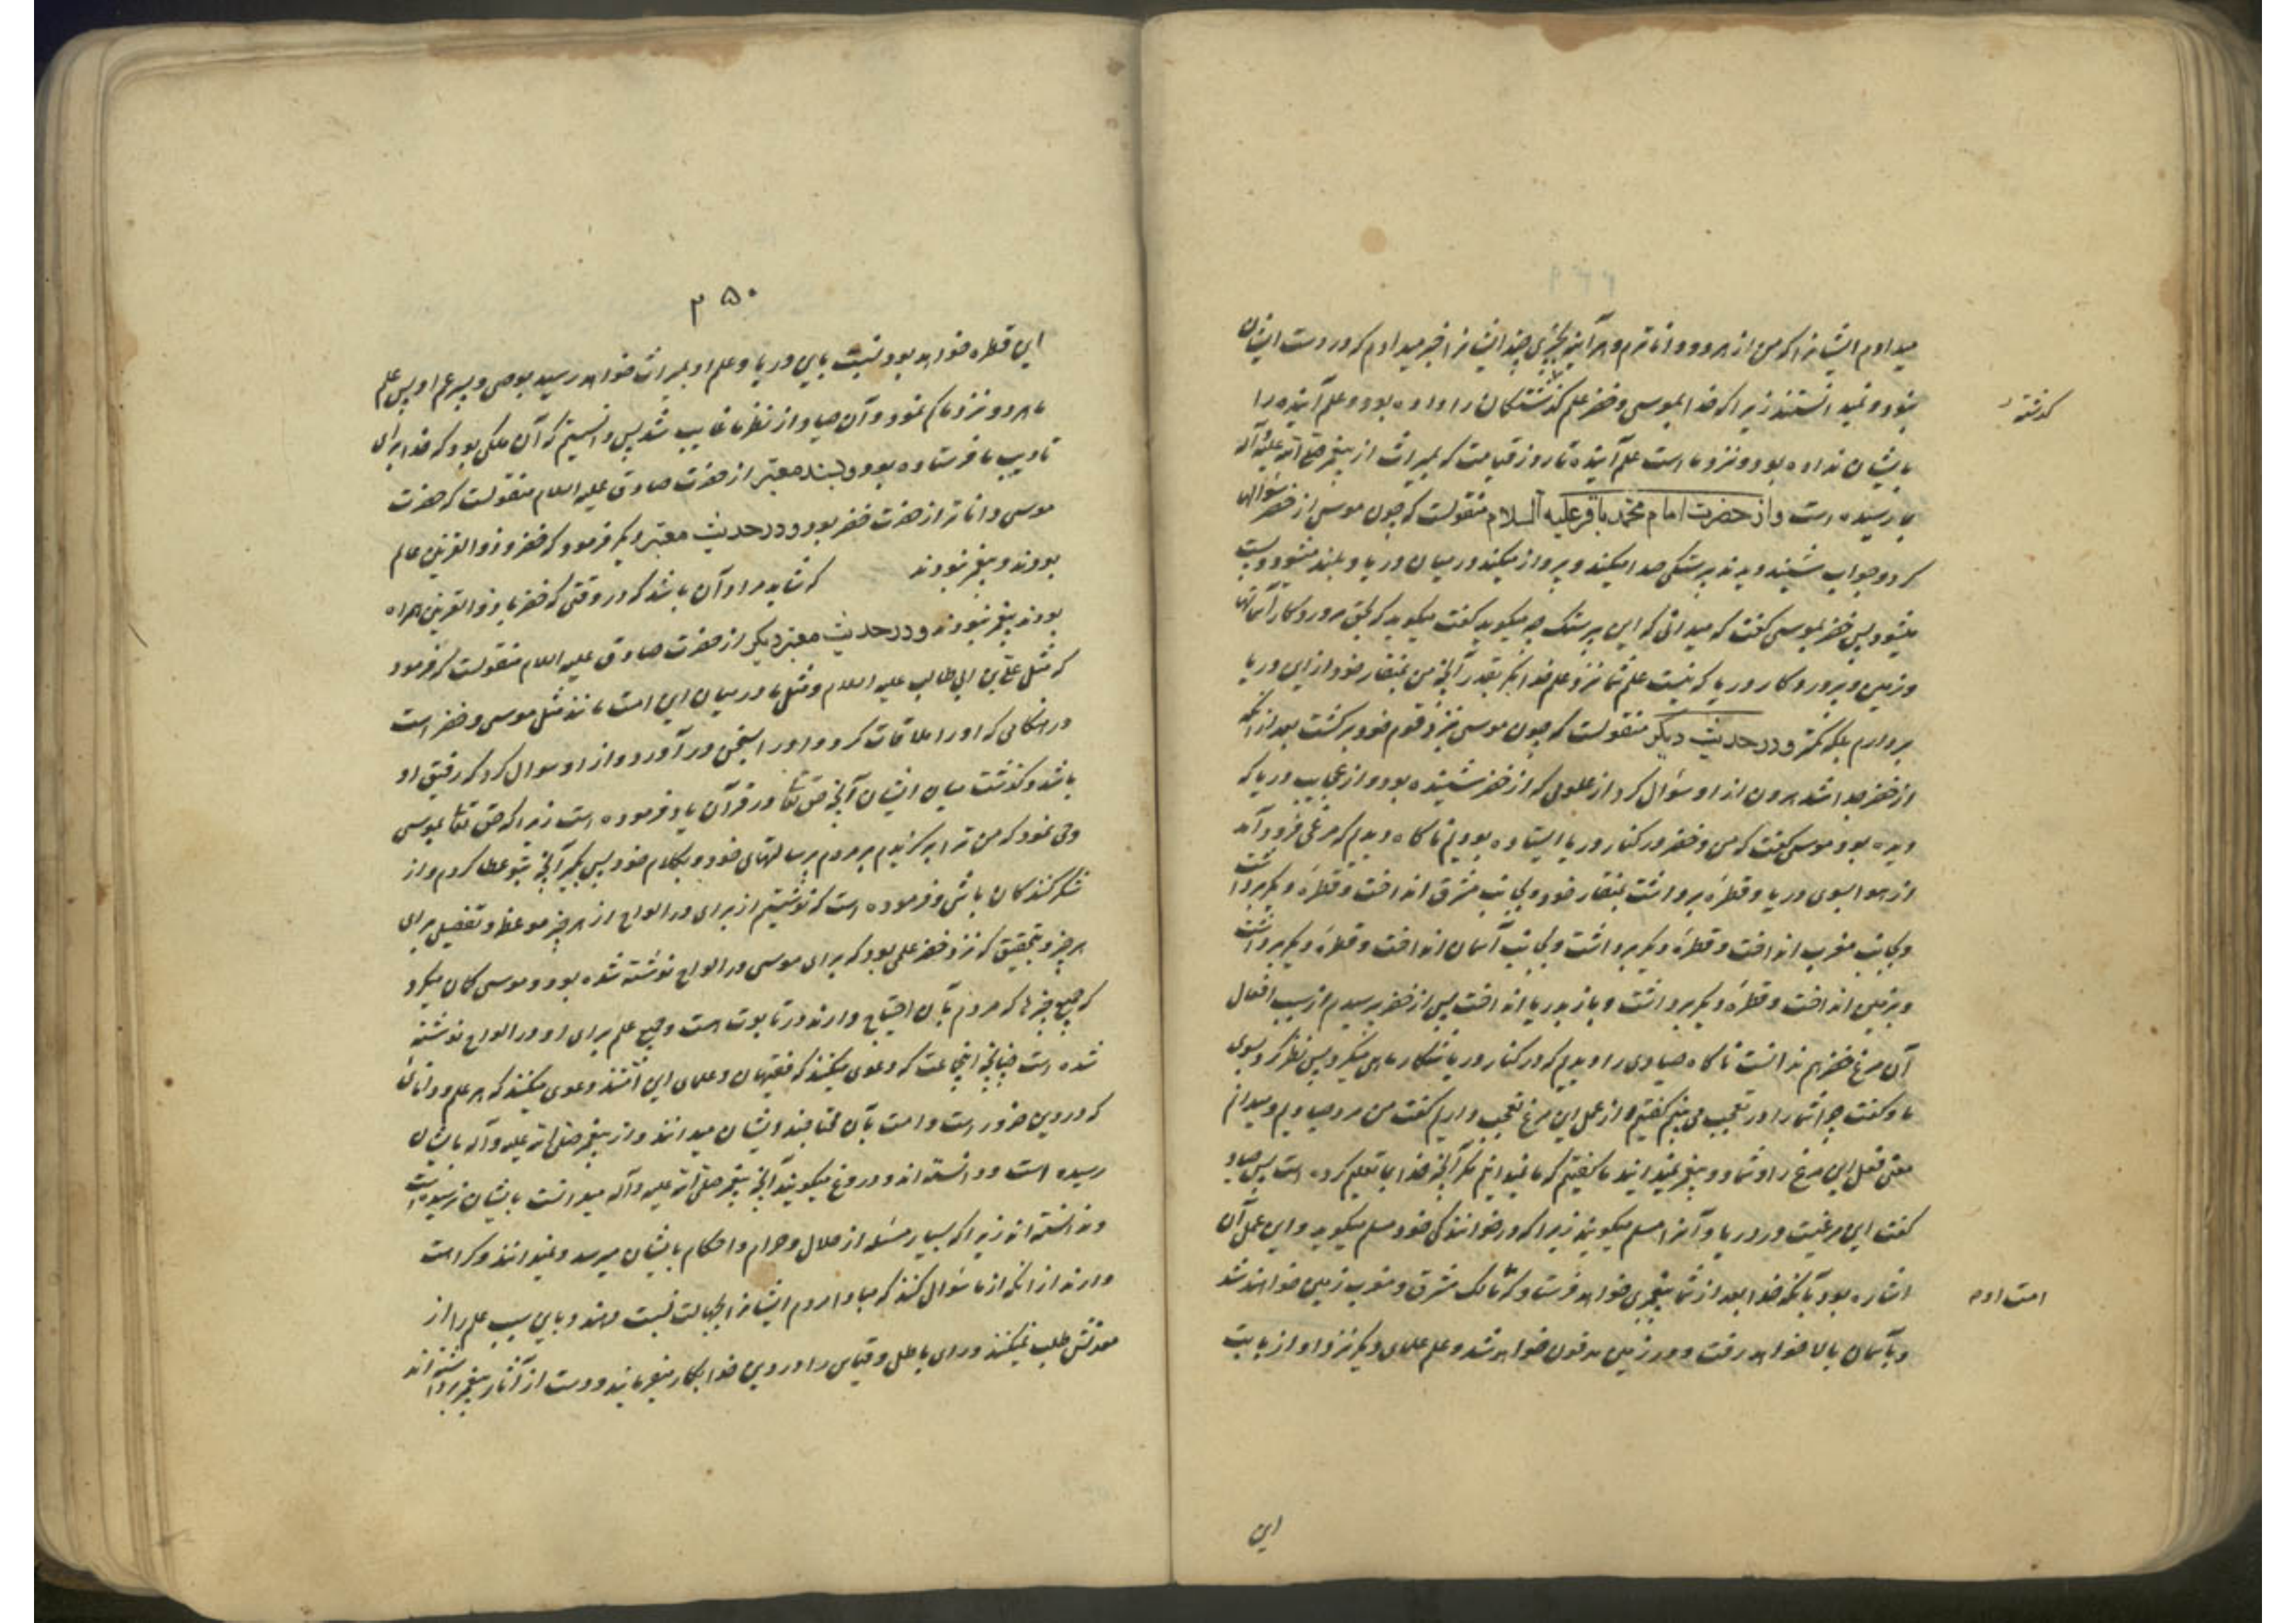 میدادم ایشانرا که من از هر دو داناترم و هر آینه بچیزی چند ایشانرا خبر میدادم که در دست ایشان
نبود و نمیدانستند زیرا که خدا بموسی و خضر علم گذشتگان را داده بود و علم آینده را
گذشته
بایشان نداده بود و نزد ماست علم آینده تا روز قیامت که بمیراث از پیغمبر صلی الله علیه و آله
بما رسیده است و از حضرت امام محمد باقر علیه السلام منقولست که چون موسی از خضر سؤالها
کرد و جواب شنید دیدند پرستکی صدا میکند و پرواز میکند در میان دریا و بلند میشود و پست
میشود پس خضر بموسی گفت که میدانی که این پرستک چه میگوید گفت میگوید که بحق پروردگار آسمانها
و زمین و پروردگار دریا که نیست علم شما نزد علم خدا مگر بقدر آنچه من بمنقار خود از این دریا
بردارم بلکه کمتر و در حدیث دیگر منقولست که چون موسی بنزد قوم خود برگشت بعد از آنکه
از خضر جدا شد هرون از او سؤال کرد از علومی که از خضر شنیده بود و از عجایب دریا که
دیده بود موسی گفت که من و خضر در کنار دریا ایستاده بودیم ناگاه دیدیم که مرغی فرود آمد
از هوا بسوی دریا و قطرهٔ برداشت بمنقار خود و بجانب مشرق انداخت و قطرهٔ دیگر برداشت
و بجانب مغرب انداخت و قطرهٔ دیگر برداشت و بجانب آسمان انداخت و قطرهٔ دیگر برداشت
و بزمین انداخت و قطرهٔ دیگر برداشت و باز بدریا انداخت پس از خضر پرسیدم از سبب افعال
آن مرغ خضر هم ندانست ناگاه صیادی را دیدیم که در کنار دریا شکار ماهی میکرد پس نظر کرد بسوی
ما و گفت چرا شما را در تعجب می بینم گفتیم از عمل این مرغ تعجب داریم گفت من مرد صیادم و میدانم
معنی فعل این مرغ را و شما دو پیغمبر نمیدانید ما گفتیم که ما نمیدانیم مگر آنچه خدا بما تعلیم کرده است پس صیاد
گفت این مرغیست در دریا و آنرا مسلم میگویند زیرا که در خوانندگی خود مسلم میگوید و این عمل آن
اشاره بود بآنکه خدا بعد از شما پیغمبری خواهد فرستاد که مالک مشرق و مغرب زمین خواهند شد
امت او م
و بآسمان بالا خواهد رفت و در زمین مدفون خواهد شد و علم علمای دیگر نزد او از بابت
این
۲۵۰
این قطره خواهد بود نسبت باین دریا و علم او بمیراث خواهد رسید بوصی و پسر عم او پس علم
ما هر دو نزد ما کم نمود و آن صیاد از نظر ما غایب شد پس دانستیم که آن ملکی بود که خدا برای
تأدیب ما فرستاده بود و بسند معتبر از حضرت صادق علیه السلام منقولست که حضرت
موسی داناتر از حضرت خضر بود و در حدیث معتبر دیگر فرمود که خضر و ذوالقرنین عالم
بودند و پیغمبر نبودند که شاید مراد آن باشد که در وقتی که خضر با ذوالقرنین همراه
بودند پیغمبر نبودند و در حدیث معتبر دیگر از حضرت صادق علیه السلام منقولست که فرمود
که مثل علی بن ابی طالب علیه السلام و مثل ما در میان این امت مانند مثل موسی و خضر است
در هنگامی که او را ملاقات کرد و او را بسخن در آورد و از او سوال کرد که رفیق او
باشد و گذشت میان ایشان آنچه حق تعالی در قرآن یاد فرموده است زیرا که حق تعالی بموسی
وحی نمود که من ترا برگزیدم بر مردم برسالتهای خود و بکلام خود پس بگیر آنچه بتو عطا کردم و از
شکر کنندگان باش و فرموده است که نوشتیم از برای او در الواح از هر چیز موعظه و تفصیلی برای
هر چیز و بتحقیق که نزد خضر علمی بود که برای موسی در الواح نوشته نشده بود و موسی گمان میکرد
که جمیع چیزها که مردم بآن احتیاج دارند در تابوت است و جمیع علم برای او در الواح نوشته
شده است چنانچه اینجماعت که دعوی میکنند که فقیهان و علمای این امتند و دعوی میکنند که هر علم و دانائی
که در دین ضرور است و امت بآن محتاجند ایشان میدانند و از پیغمبر صلی الله علیه و آله بایشان
رسیده است و دانسته اند و دروغ میگویند آنچه پیغمبر صلی الله علیه و آله میدانست بایشان نرسیده است
و ندانسته اند زیرا که بسیار مسئله از حلال و حرام و احکام بایشان میرسد و نمیدانند و کراهت
دارند از آنکه از ما سؤال کنند که مبادا مردم ایشانرا بجهالت نسبت دهند و باین سبب علم را از
معدنش طلب نمیکنند و رای باطل و قیاس را در دین خدا بکار میفرمایند و دست از آثار پیغمبر برداشته اند